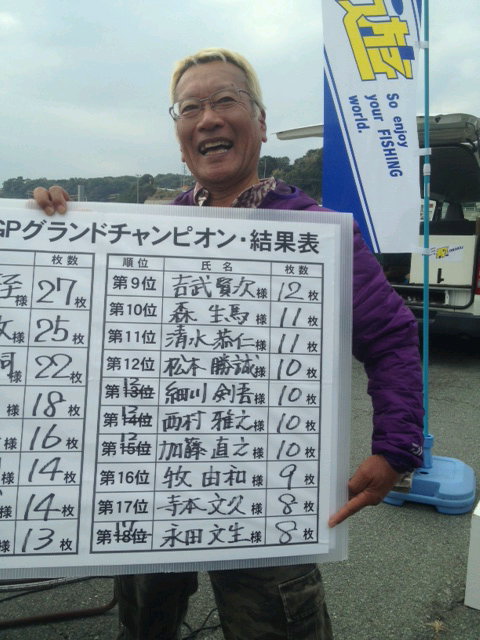 So enjoy
your FISHING
world.
GPグランドチャンピオン・結果表
枚数
様 27枚
様 25枚
様 22枚
様 18枚
様 16枚
様 14枚
様 14枚
様 13枚
順位 氏名 枚数
第9位 吉武賢次様 12枚
第10位 森 生馬様 11枚
第11位 清水恭仁様 11枚
第12位 松本勝誠様 10枚
第13位 12 細川剣吾様 10枚
第14位 12 西村雅之様 10枚
第15位 12 加藤直之様 10枚
第16位 牧 由和様 9枚
第17位 寺本文久様 8枚
第18位 17 永田文生様 8枚